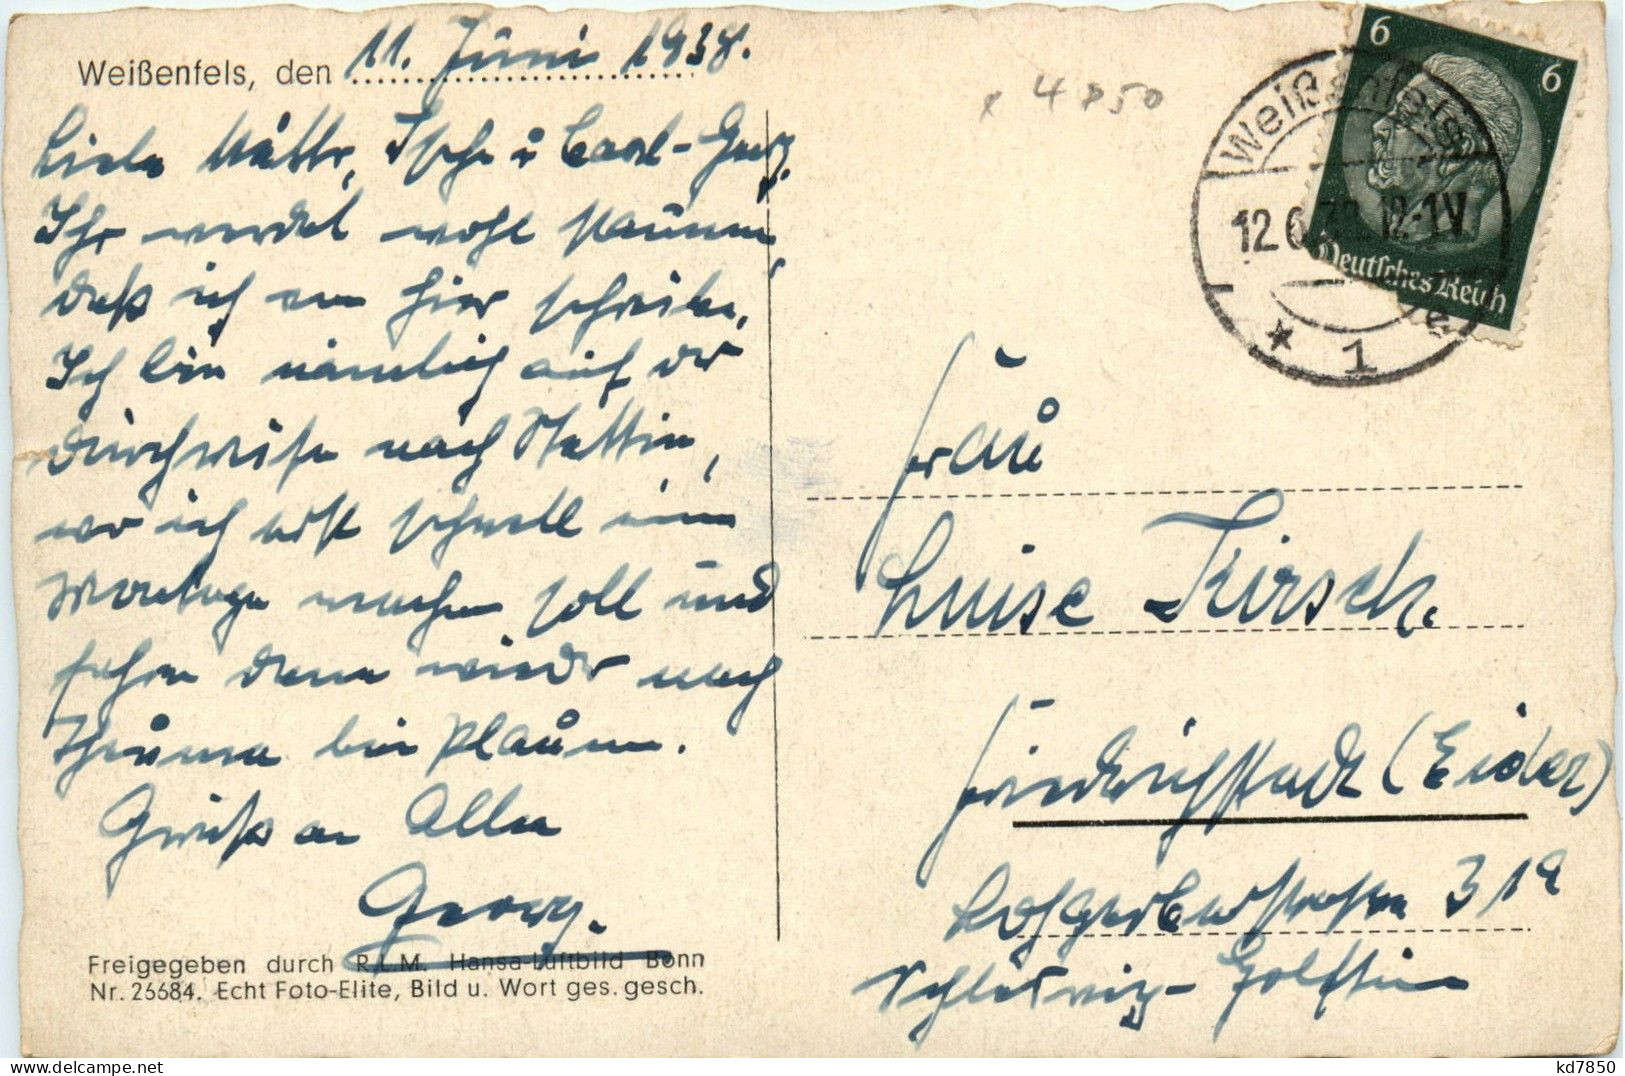 Weißenfels, den 11. Juni 1938.
Liebe Mutter, Ilse u Carl-Georg.
Ihr werdet wohl staunen,
daß ich von hier schreibe.
Ich bin nämlich auf der
Durchreise nach Stettin,
wo ich erst schnell eine
Montage machen soll und
fahre dann wieder nach
Theuma bei Plauen.
Grüße an Alle
Georg.
Freigegeben durch R.L.M. Hansa-Luftbild Bonn
Nr. 26684. Echt Foto-Elite, Bild u. Wort ges. gesch.
x 4850
6 6
Deutsches Reich
Weißenfels
12.6.38.12-1V
* 1 e
Frau
Luise Kirsch.
Friedrichstadt (Eider)
Lohgerberstraße 31a
Schleswig-Holstein
kd7850